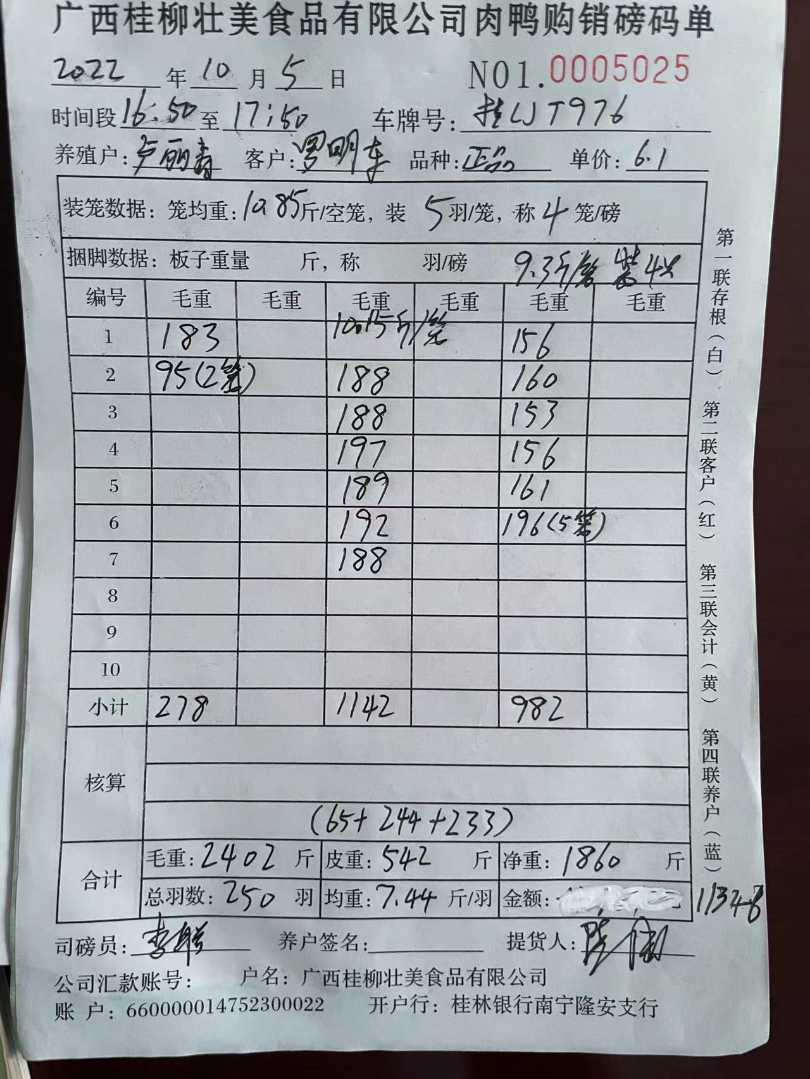 广西桂柳壮美食品有限公司肉鸭购销磅码单
2022 年 10 月 5 日 NO1.0005025
时间段 16:50 至 17:50 车牌号: 桂LJT976
养殖户: 卢丽青 客户: 罗明车 品种: 正品 单价: 6.1
装笼数据: 笼均重: 10.85 斤/空笼, 装 5 羽/笼, 称 4 笼/磅
捆脚数据: 板子重量 斤, 称 羽/磅 9.3斤/笼 装4只
编号 毛重 毛重 毛重 毛重 毛重 毛重
1 183 10.15斤/笼 156
2 95(2笼) 188 160
3 188 153
4 197 156
5 189 161
6 192 196(5笼)
7 188
8
9
10
小计 278 1142 982
核算
(65+244+233)
合计 毛重: 2402 斤 皮重: 542 斤 净重: 1860 斤
总羽数: 250 羽 均重: 7.44 斤/羽 金额: 11346
司磅员: 养户签名: 提货人:
公司汇款账号: 户名: 广西桂柳壮美食品有限公司
账 户: 660000014752300022 开户行: 桂林银行南宁隆安支行
第一联存根(白) 第二联客户(红) 第三联会计(黄) 第四联养户(蓝)